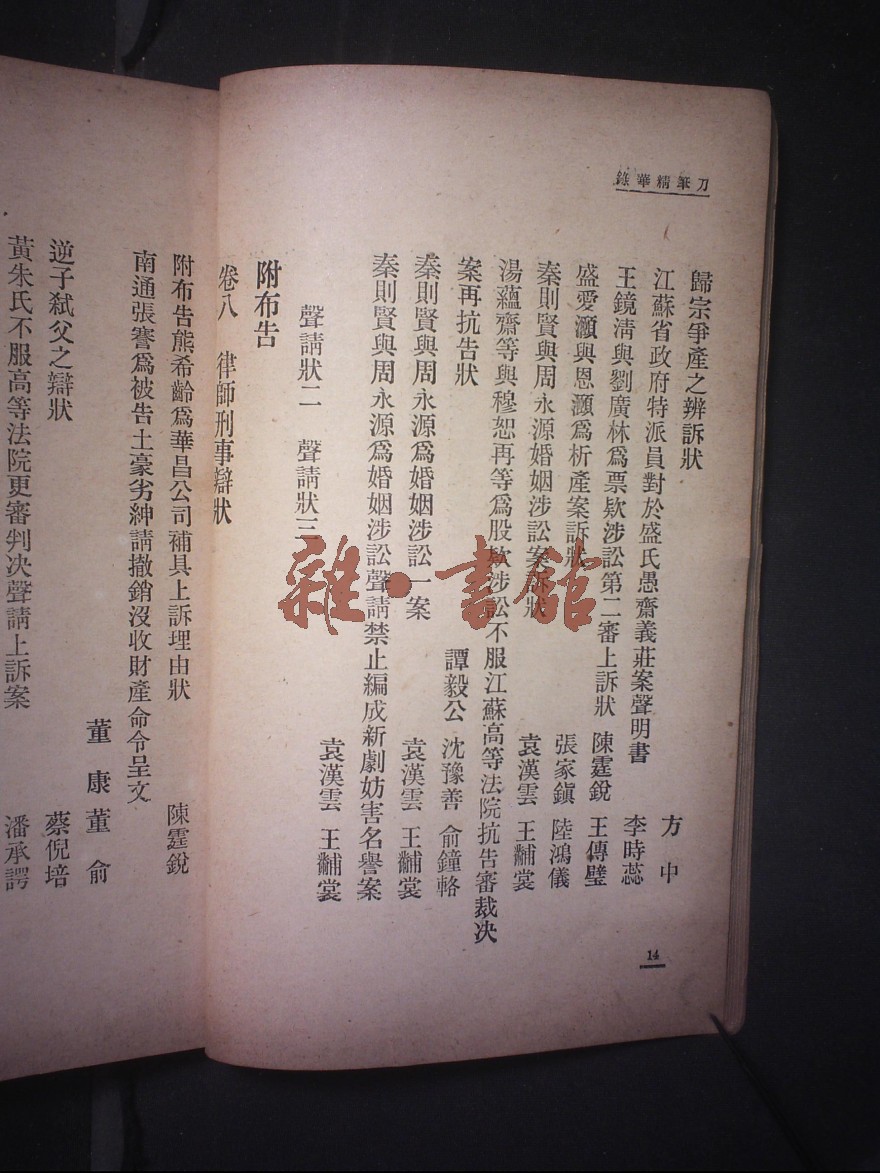 刀筆精華錄
歸宗爭產之辨訴狀 方中
江蘇省政府特派員對於盛氏愚齋義莊案聲明書 李時蕊
王鏡淸與劉廣林爲票欵涉訟第二審上訴狀 陳霆銳 王傳璧
盛愛灝與恩灝爲析產案訴狀 張家鎮 陸鴻儀
秦則賢與周永源婚姻涉訟案訴狀 袁漢雲 王黼裳
湯蘊齋等與穆恕再等爲股欵涉訟不服江蘇高等法院抗告審裁决
案再抗告狀 譚毅公 沈豫善 俞鐘輅
秦則賢與周永源爲婚姻涉訟一案 袁漢雲 王黼裳
秦則賢與周永源爲婚姻涉訟聲請禁止編成新劇妨害名譽案
聲請狀二 聲請狀三 袁漢雲 王黼裳
附布告
卷八 律師刑事辯狀
14
附布告熊希齡爲華昌公司補具上訴理由狀 陳霆銳
南通張謇爲被告土豪劣紳請撤銷沒收財產命令呈文
董康 董俞
逆子弒父之辯狀 蔡倪培
黃朱氏不服高等法院更審判决聲請上訴案 潘承諤
雜·書館